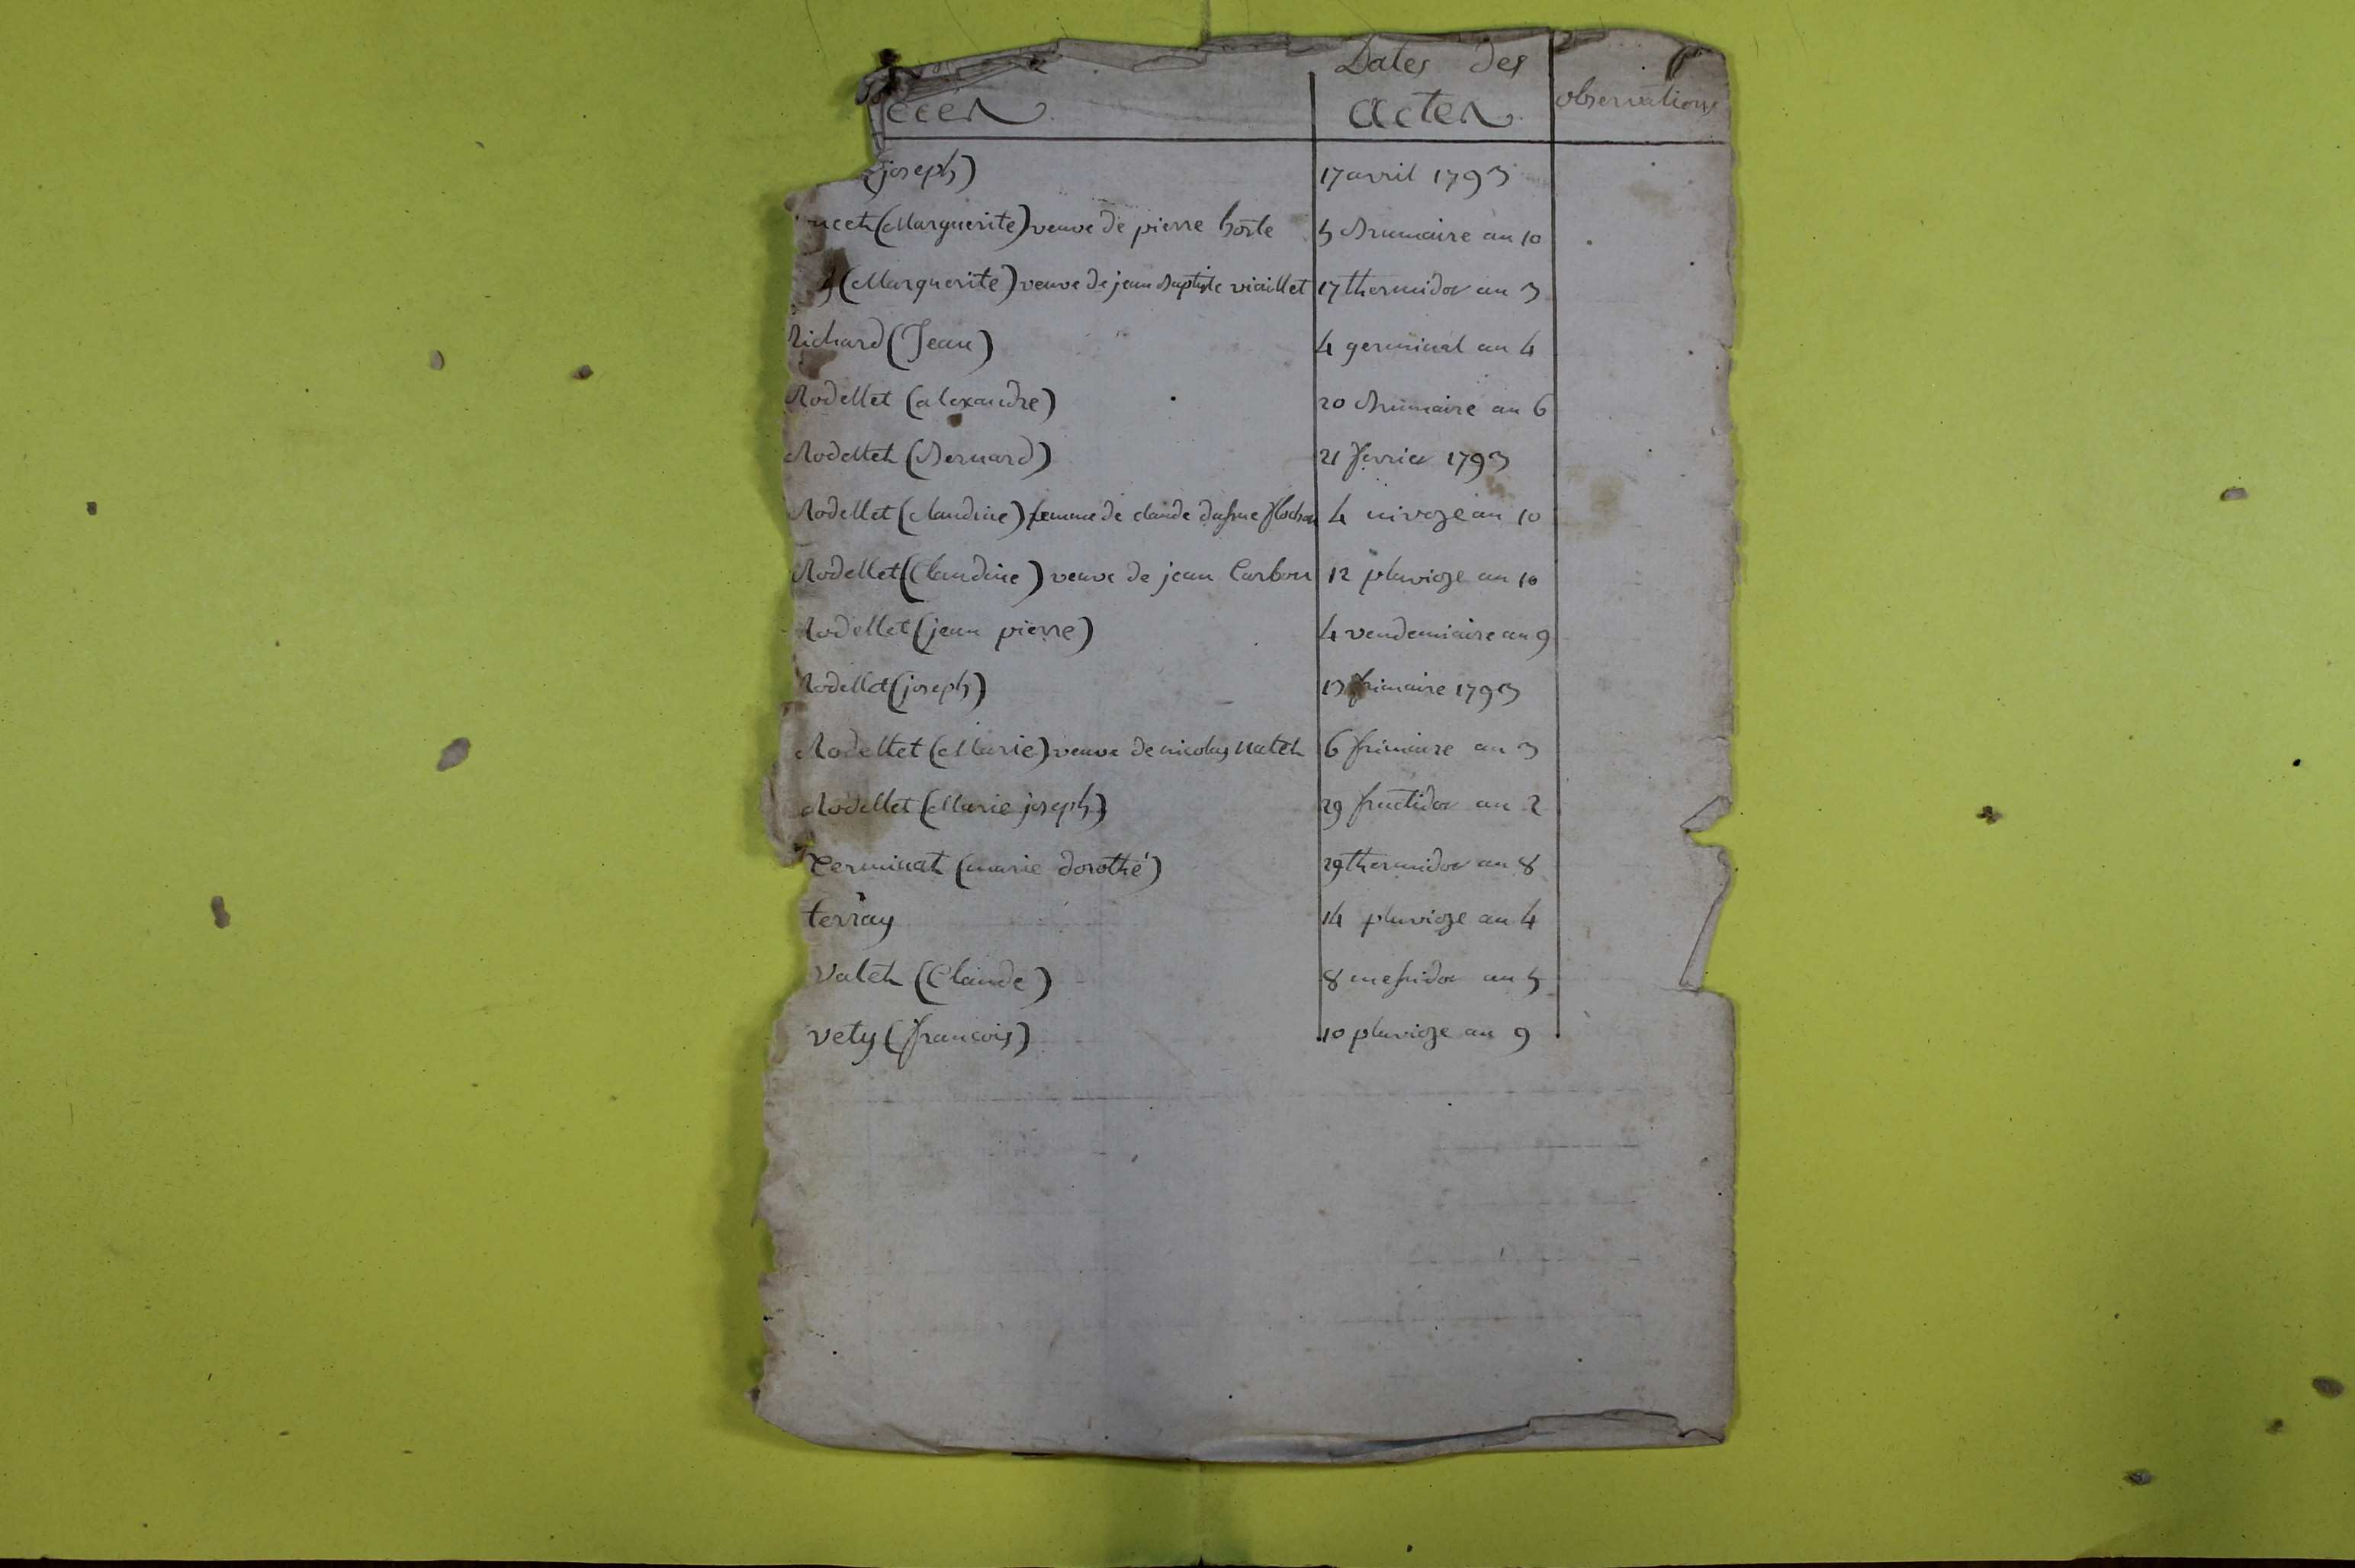 Dates des
ecés actes observations
(joseph) 17 avril 1793
ucet (Marguerite) veuve de pierre horte 5 Brumaire an 10
(Marguerite) veuve de jean Baptiste viaillet 17 thermidor an 3
Richard (Jean) 4 germinal an 4
Rodellet (alexandre) 20 Brumaire an 6
Rodellet (Bernard) 21 fevrier 1793
Rodellet (claudine) femme de claude 4 nivoze an 10
Rodellet (Claudine) veuve de jean Carbon 12 pluvioze an 10
Rodellet (jean pierre) 4 vendemiaire an 9
Rodellet (joseph) 13 frimaire 1793
Rodellet (Marie) veuve de nicolas Valet 6 frimaire an 3
Rodellet (Marie joseph) 29 fructidor an 2
Terminat (marie dorothé) 29 thermidor an 8
terray 14 pluvioze an 4
Valet (Claude) 8 messidor an 5
vety (francois) 10 pluvioze an 9